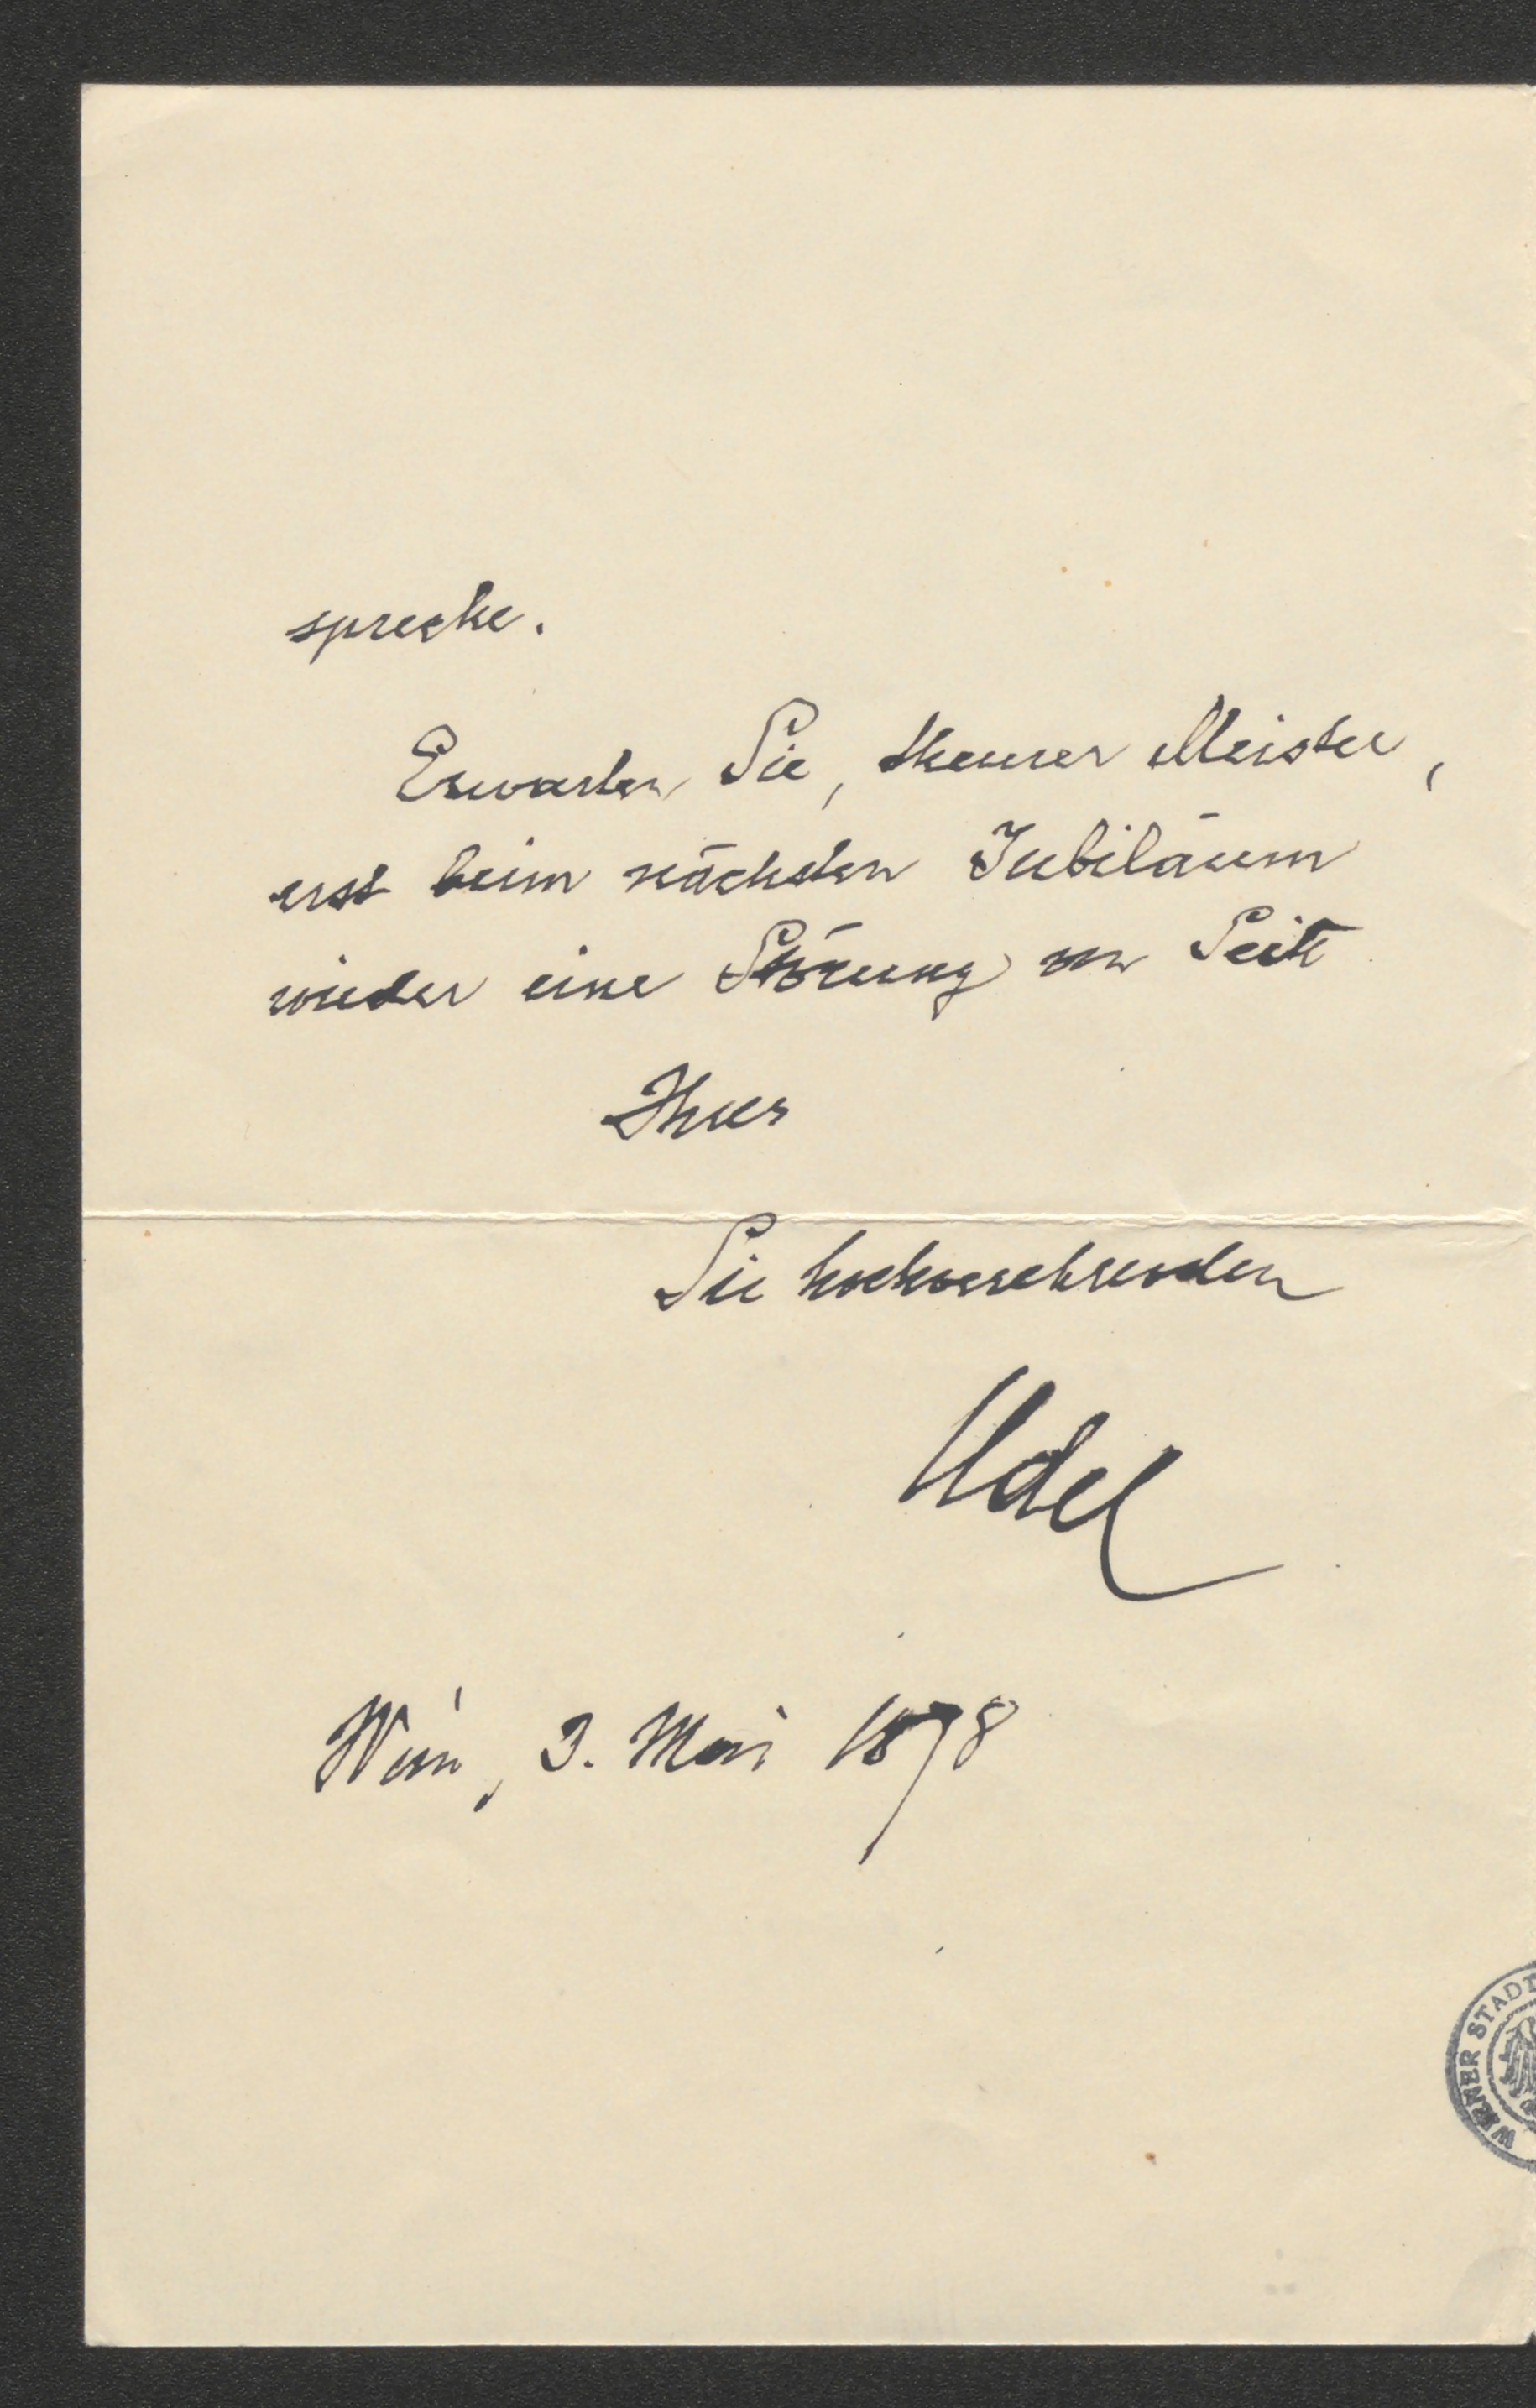 spreche.
Erwarten Sie, theurer Meister,
erst beim nächsten Jubiläum
wieder eine Störung von Seite
Ihres
Sie hochverehrenden
Udel
Wien, 3. Mai 1898
WIENER STADT